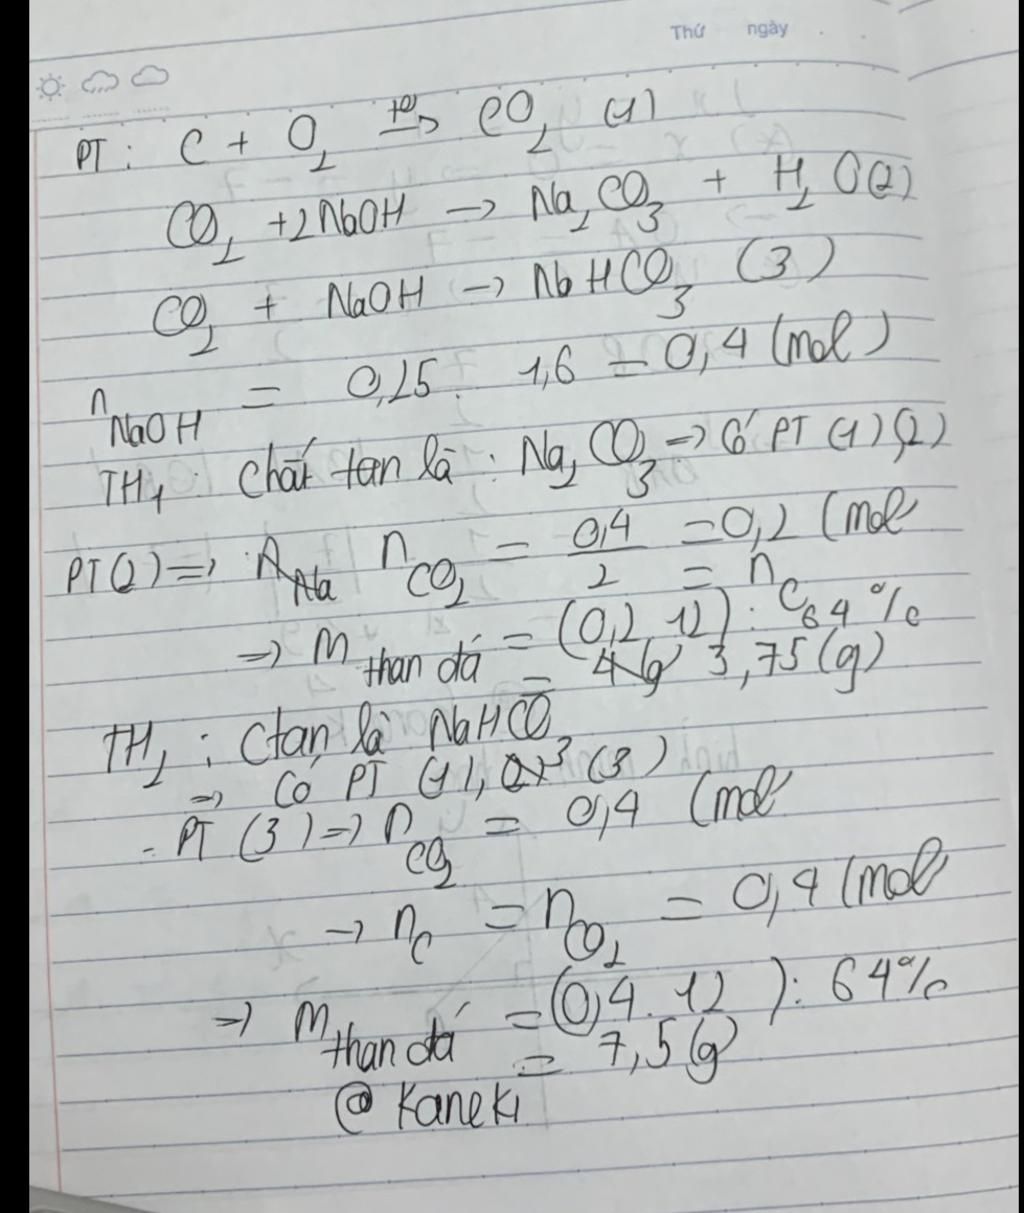 Thứ ngày
PT: C + O₂ t°→ CO₂ (1)
CO₂ + 2NaOH → Na₂CO₃ + H₂O (2)
CO₂ + NaOH → NaHCO₃ (3)
n NaOH = 0,25 . 1,6 = 0,4 (mol)
TH₁ : Chất tan là : Na₂CO₃ → Có PT (1) (2)
PT(2) => : n CO₂ = 0,4/2 = 0,2 (mol
= n C
=> m than đá = (0,2 . 12) : 64%
= 3,75 (g)
TH₂ : Ctan là NaHCO₃
=> Có PT (1), (3)
- PT (3) => n CO₂ = 0,4 (mol
→ n C = n CO₂ = 0,4 (mol
=> m than đá = (0,4 . 12) : 64%
= 7,5 (g)
@ Kaneki